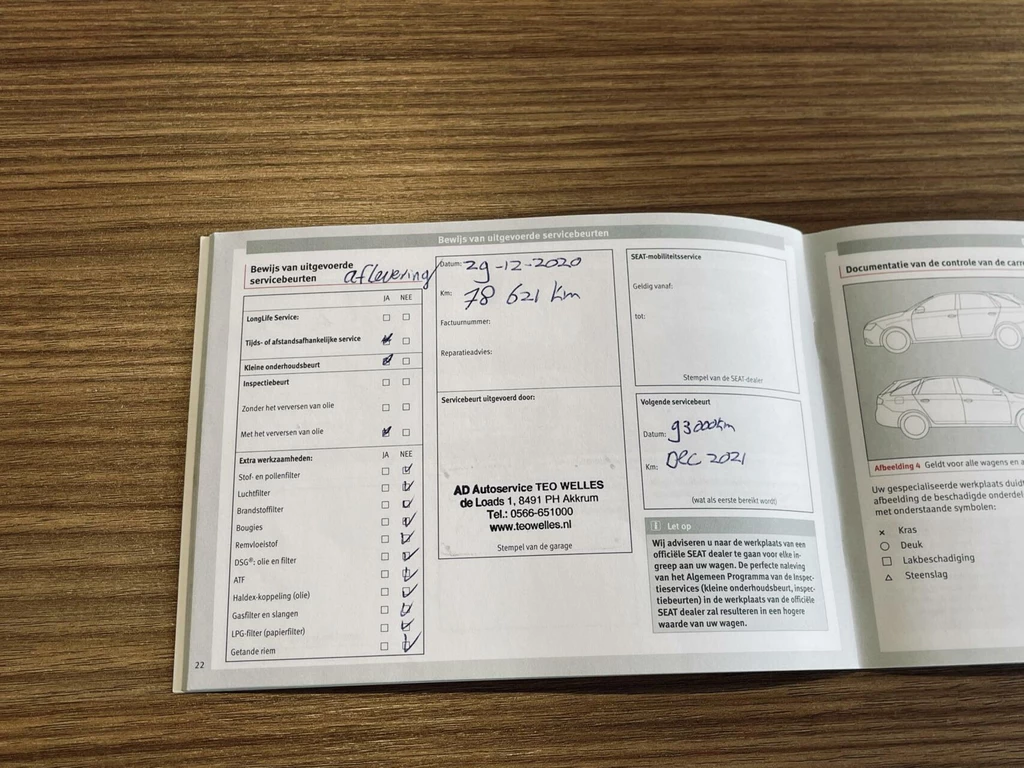 Bewijs van uitgevoerde servicebeurten
Bewijs van uitgevoerde
servicebeurten
aflevering
JA NEE
LongLife Service:
Tijds- of afstandsafhankelijke service
Kleine onderhoudsbeurt
Inspectiebeurt
Zonder het verversen van olie
Met het verversen van olie
Extra werkzaamheden: JA NEE
Stof- en pollenfilter
Luchtfilter
Brandstoffilter
Bougies
Remvloeistof
DSG®: olie en filter
ATF
Haldex-koppeling (olie)
Gasfilter en slangen
LPG-filter (papierfilter)
Getande riem
22
Datum: 29-12-2020
Km: 78 621 km
Factuurnummer:
Reparatieadvies:
Servicebeurt uitgevoerd door:
AD Autoservice TEO WELLES
de Loads 1, 8491 PH Akkrum
Tel.: 0566-651000
www.teowelles.nl
Stempel van de garage
SEAT-mobiliteitsservice
Geldig vanaf:
tot:
Stempel van de SEAT-dealer
Volgende servicebeurt
Datum: 93000km
Km: Dec 2021
(wat als eerste bereikt wordt)
i Let op
Wij adviseren u naar de werkplaats van een
officiële SEAT dealer te gaan voor elke in-
greep aan uw wagen. De perfecte naleving
van het Algemeen Programma van de Inspec-
tieservices (kleine onderhoudsbeurt, inspec-
tiebeurten) in de werkplaats van de officiële
SEAT dealer zal resulteren in een hogere
waarde van uw wagen.
Documentatie van de controle van de carr
Afbeelding 4 Geldt voor alle wagens en a
Uw gespecialiseerde werkplaats duidt
afbeelding de beschadigde onderdel
met onderstaande symbolen:
Kras
Deuk
Lakbeschadiging
Steenslag